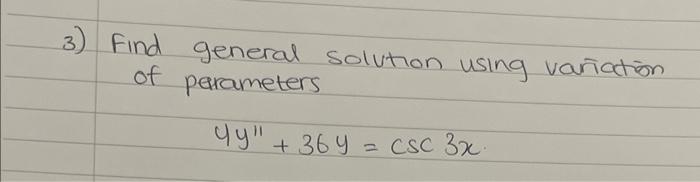 3) Find general solution using variation
of parameters
4y" + 36y = csc 3x.